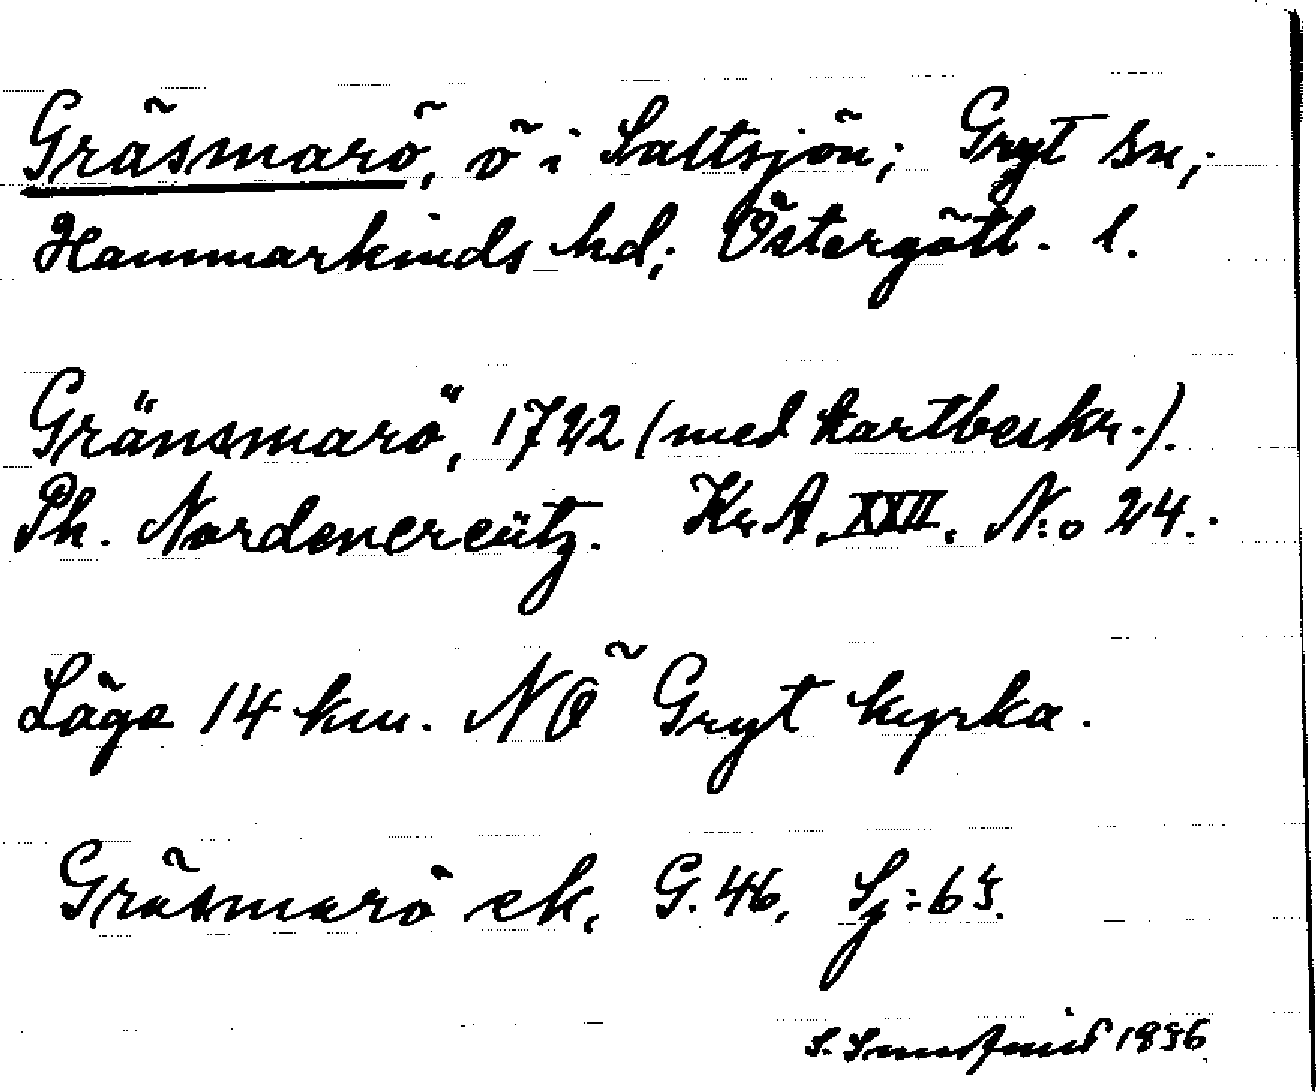 Gräsmarö, ö i Saltsjön; Gryt sn;
Hammarkinds hd; Östergötl. l.
Gränsmarö, 1722 (med kartbeskr.).
Ph. Nordencreütz. Kr.A. XXII. N:o 24.
Läge 14 km. NO Gryt kyrka.
Gräsmarö ek. G. 46. Sj: 65.
S. 1936